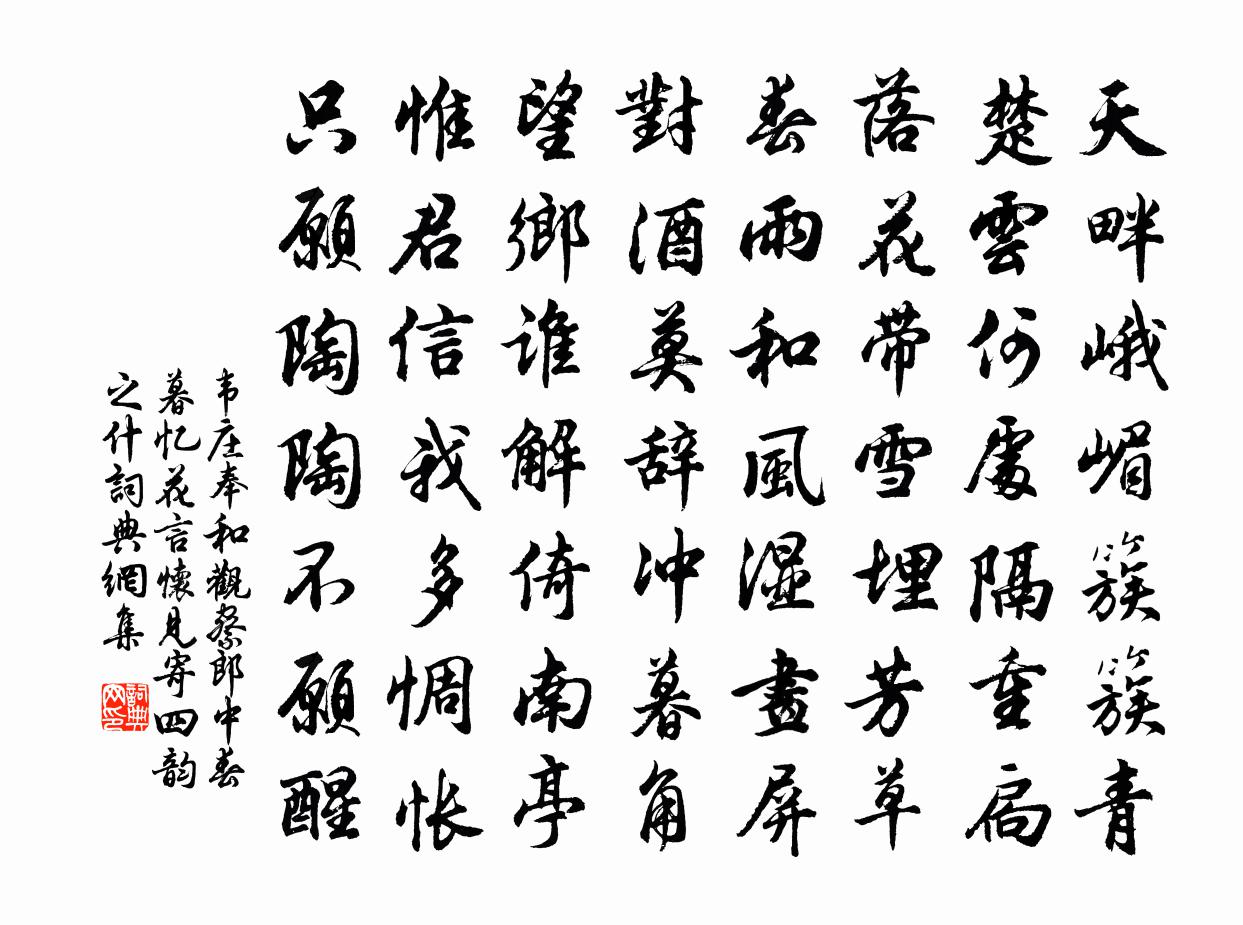 天畔峨嵋簇簇青
楚雲何處隔重扃
落花带雪埋芳草
春雨和風湿畫屏
對酒莫辞冲暮角
望鄉谁解倚南亭
惟君信我多惆怅
只願陶陶不願醒
韦庄奉和觀察郎中春
暮忆花言懷見寄四韵
之什詞典網集
詞典网印